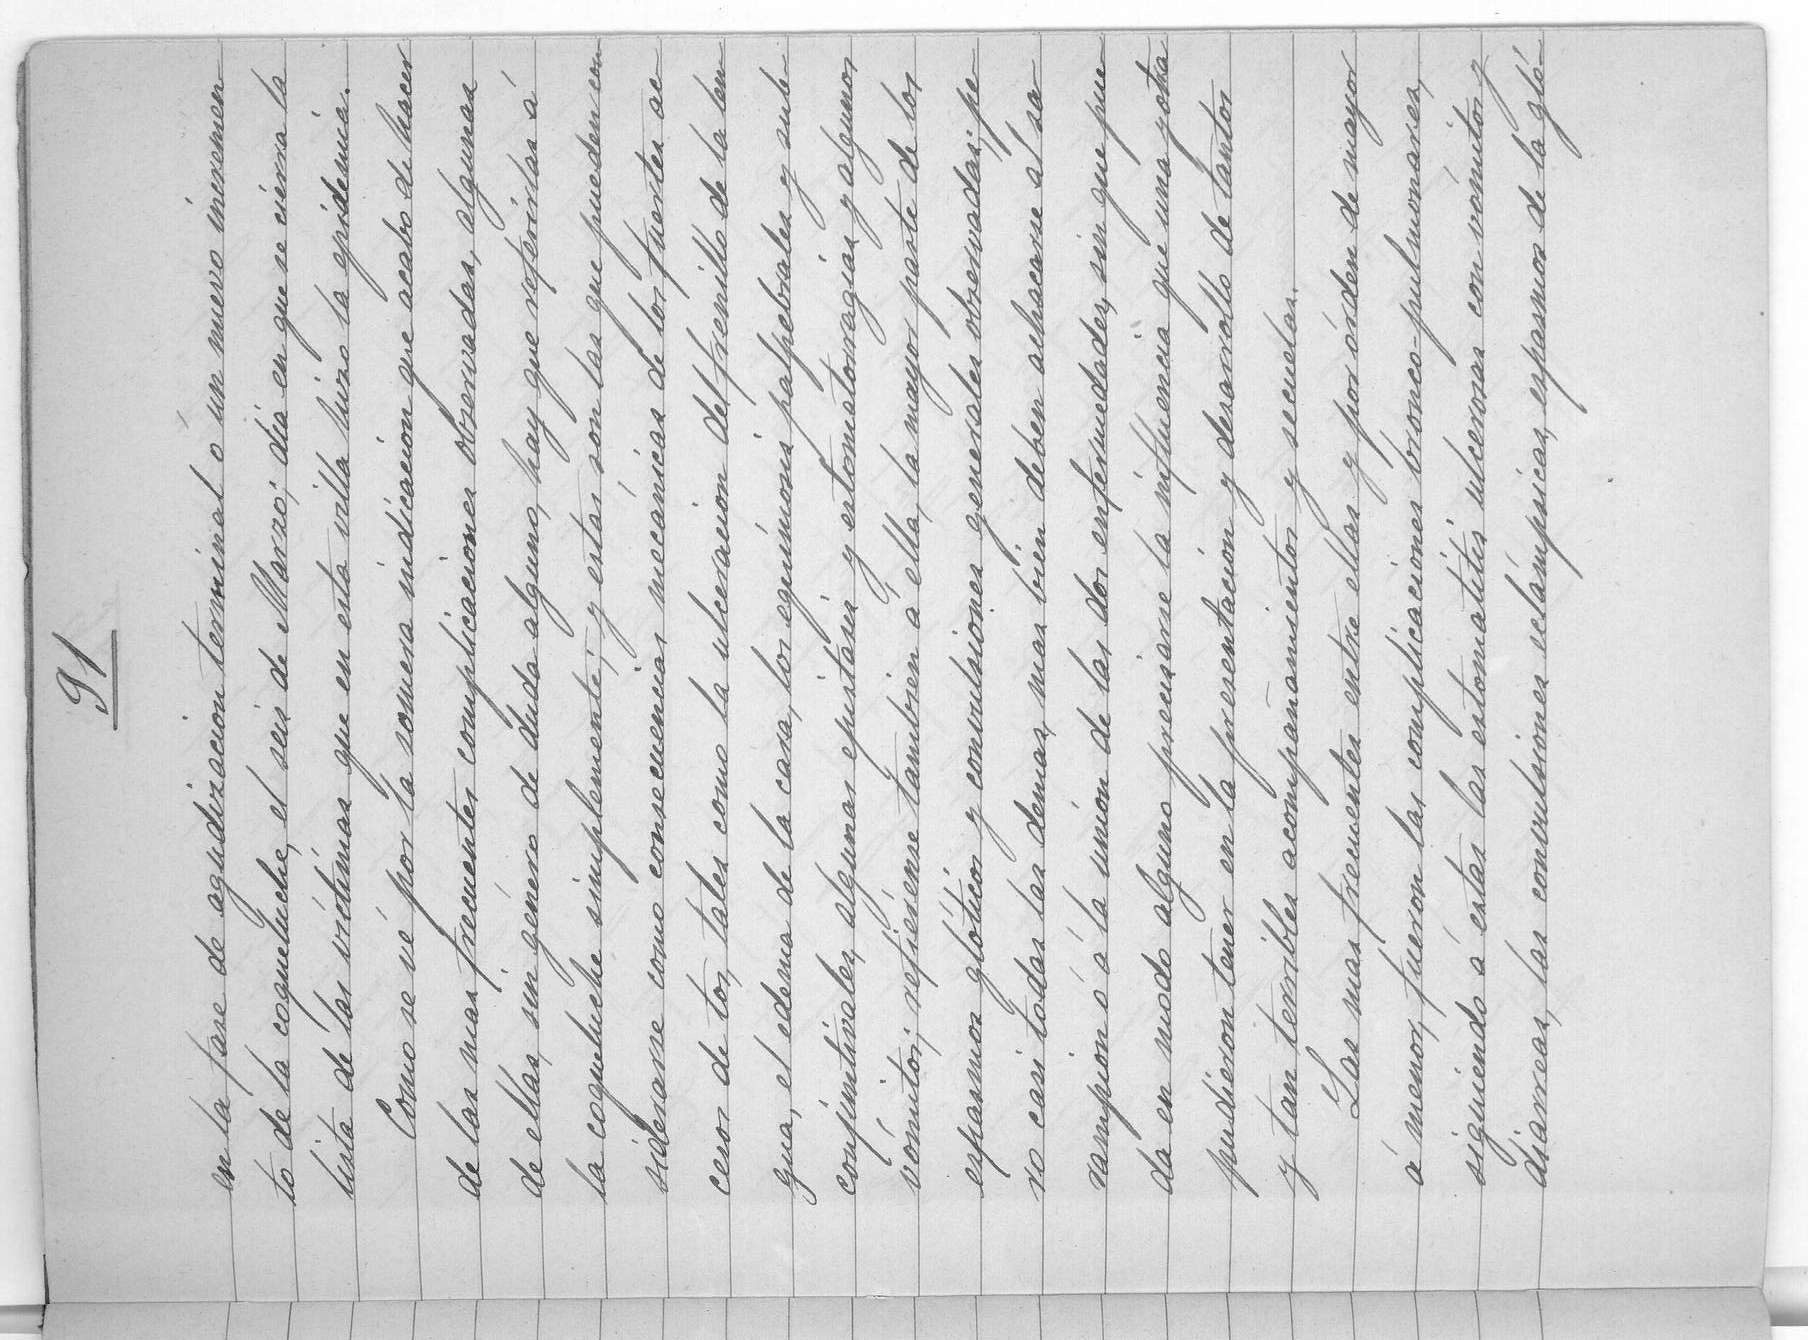 91
en la fase de agudizacion terminal o un nuevo incremen
to de la coqueluche, el seis de Marzo, dia en que se cierra la
lista de las victimas que en esta villa hizo la epidemia.
Como se vé por la somera indicacion que acabo de hacer
de las mas frecuentes complicaciones observadas, algunas
de ellas, sin género de duda alguno, hay que referirlas á
la coqueluche simplemente; y estas son las que pueden con
siderarse como consecuencias mecánicas de los fuertes ac-
cesos de tos, tales como la ulceracion del frenillo de la len
gua, el edema de la cara, los equímosis palpebrales y sub-
conjuntivales, algunas epistasis y estomatorragias y algunos
vómitos; refiérense tambien á ella, la mayor parte de los
espasmos glóticos y convulsiones generales observadas; pe-
ro casi todas las demas, mas bien deben achacarse al sa-
rampion ó á la union de las dos enfermedades, sin que pue
da en modo alguno precisarse la influencia que una y otra
pudieron tener en la presentacion y desarrollo de tantos
y tan terribles acompañamientos y secuelas.
Las mas frecuentes entre ellas y por órden de mayor
á menor, fueron las complicaciones bronco-pulmonares,
siguiendo á estas las estomatitis ulcerosas con vómitos y
diarreas, las convulsiones eclámpsicas, espasmos de la gló-